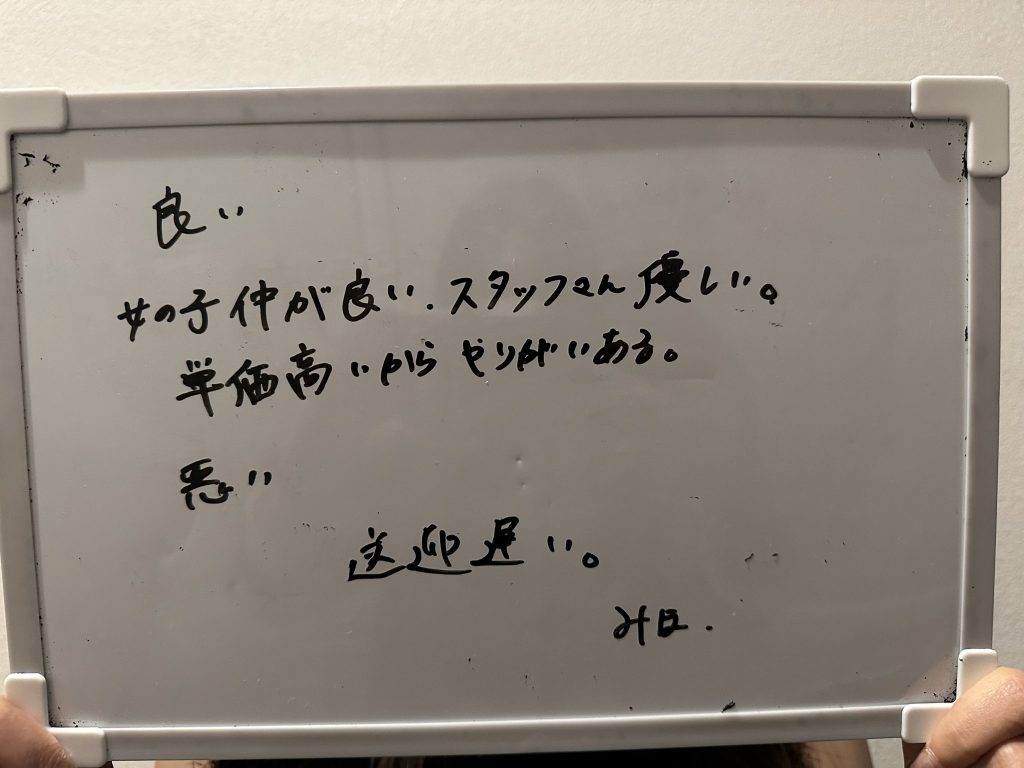 良い
女の子仲が良い.スタッフさん優しい。
単価高いからやりがいある。
悪い
送迎遅い。